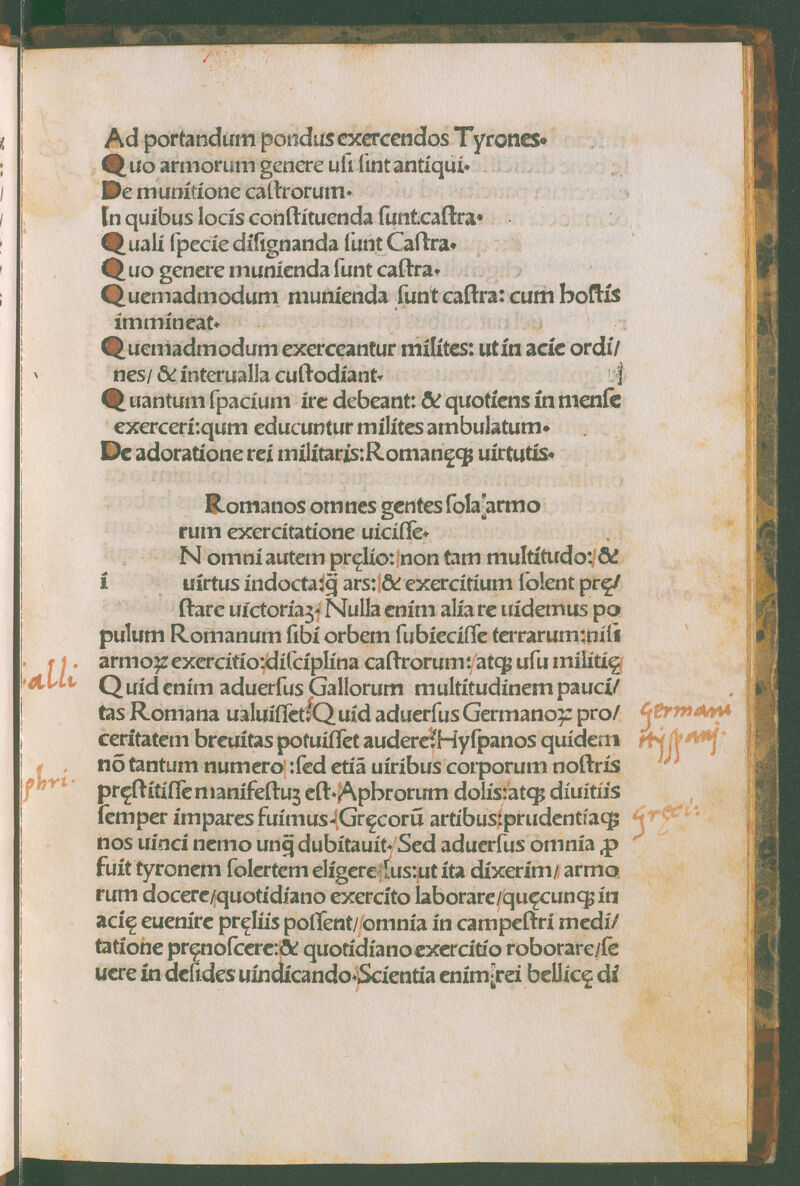 Ad portandum pondus exercendos Tyrones.
Quo armorum genere uſi ſint antiqui.
De munitione caſtrorum.
In quibus locis conſtituenda ſunt caſtra.
Quali ſpecie diſignanda ſunt Caſtra.
Quo genere munienda ſunt caſtra.
Quemadmodum munienda ſunt caſtra: cum hoſtis
immineat.
Quemadmodum exerceantur milites: ut in acie ordi/
nes/ & interualla cuſtodiant.
Quantum ſpacium ire debeant: & quotiens in menſe
exerceri:qum educuntur milites ambulatum.
De adoratione rei militaris:Romanęqꝫ uirtutis.
Romanos omnes gentes ſola armo
rum exercitatione uiciſſe.
N omni autem pręlio: non tam multitudo: &
i uirtus indocta:q̄ ars: & exercitium ſolent prę/
ſtare uictoriaꝫ: Nulla enim alia re uidemus po
pulum Romanum ſibi orbem ſubieciſſe terrarum:niſi
armoꝝ exercitio:diſciplina caſtrorum: atqꝫ uſu militię
alli
Quid enim aduerſus Gallorum multitudinem pauci/
tas Romana ualuiſſet? Quid aduerſus Germanoꝝ pro/
Germani
ceritatem breuitas potuiſſet audere? Hyſpanos quidem
Hyſpanj.
nō tantum numero :ſed etiā uiribus corporum noſtris
phri.
pręſtitiſſe manifeſtuꝫ eſt. Aphrorum dolis:atqꝫ diuitiis
ſemper impares fuimus. Gręcorū artibus:prudentiaqꝫ
Greci.
nos uinci nemo unq̄ dubitauit. Sed aduerſus omnia ꝓ
fuit tyronem ſolertem eligere: Ius:ut ita dixerim/ armo
rum docere/quotidiano exercito laborare/quęcunqꝫ in
acię euenire pręliis poſſent/ omnia in campeſtri medi/
tatione pręnoſcere:& quotidiano exercitio roborare/ſe
uere in deſides uindicando. Scientia enim rei bellicę di